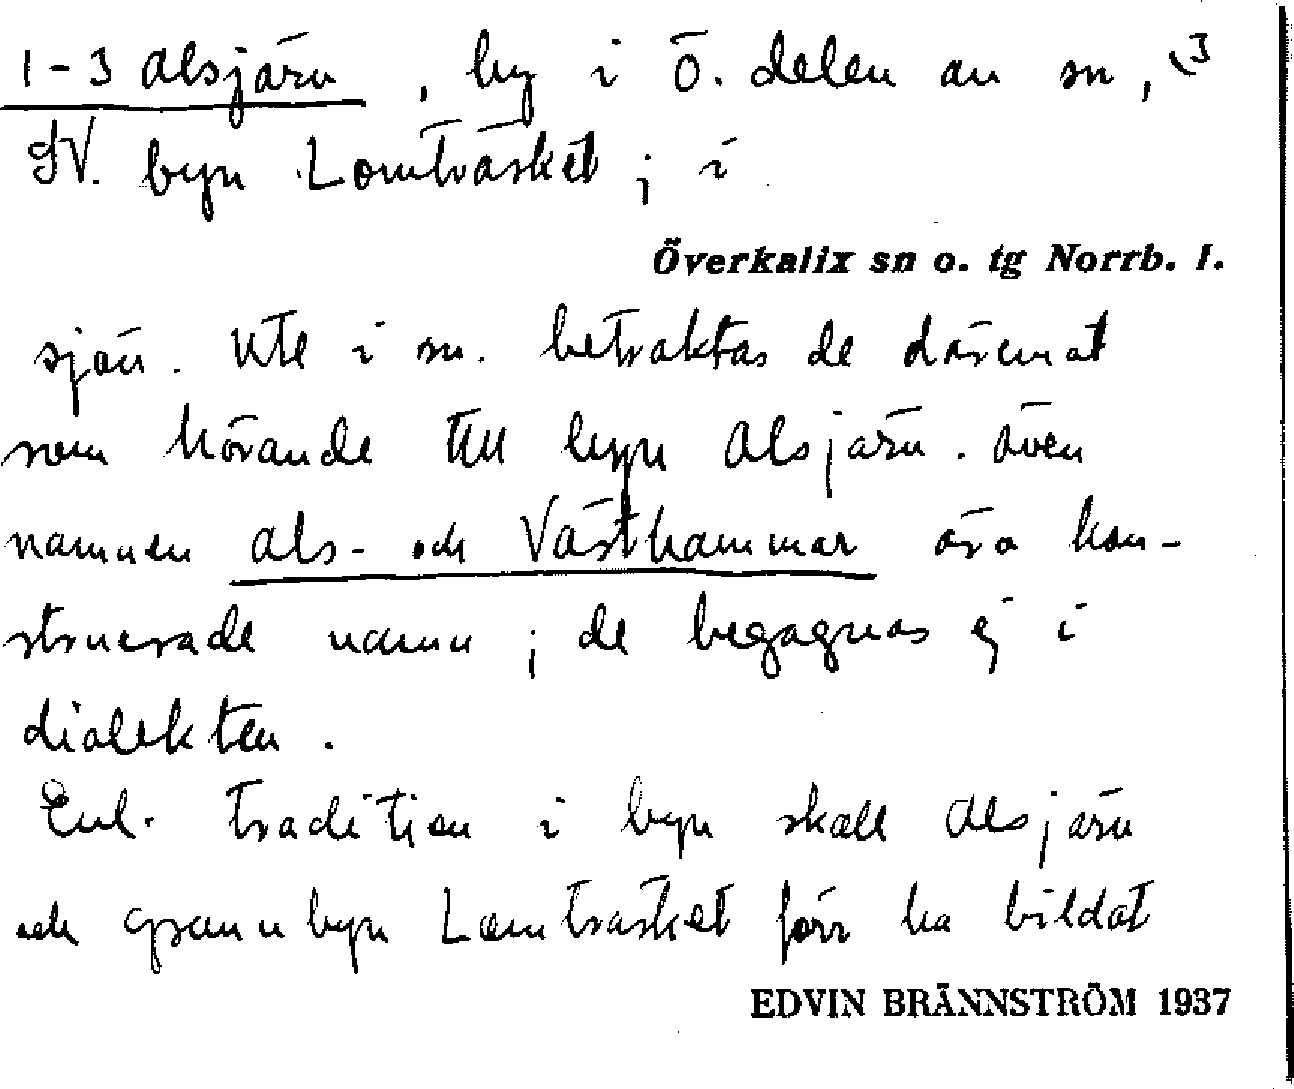 1-3 Alsjärv, by i ö. delen av sn, (3
SV. byn Lomträsket; i
Överkalix sn o. tg Norrb. l.
sjön. Ute i sn. betraktas de däremot
som hörande till byn Alsjärv. Även
namnen Als- och Västhammar ära kon-
struerade namn; de begagnas ej i
dialekten.
Enl. tradition i byn skall Alsjärv
och grannbyn Lomträsket förr ha bildat
EDVIN BRÄNNSTRÖM 1937